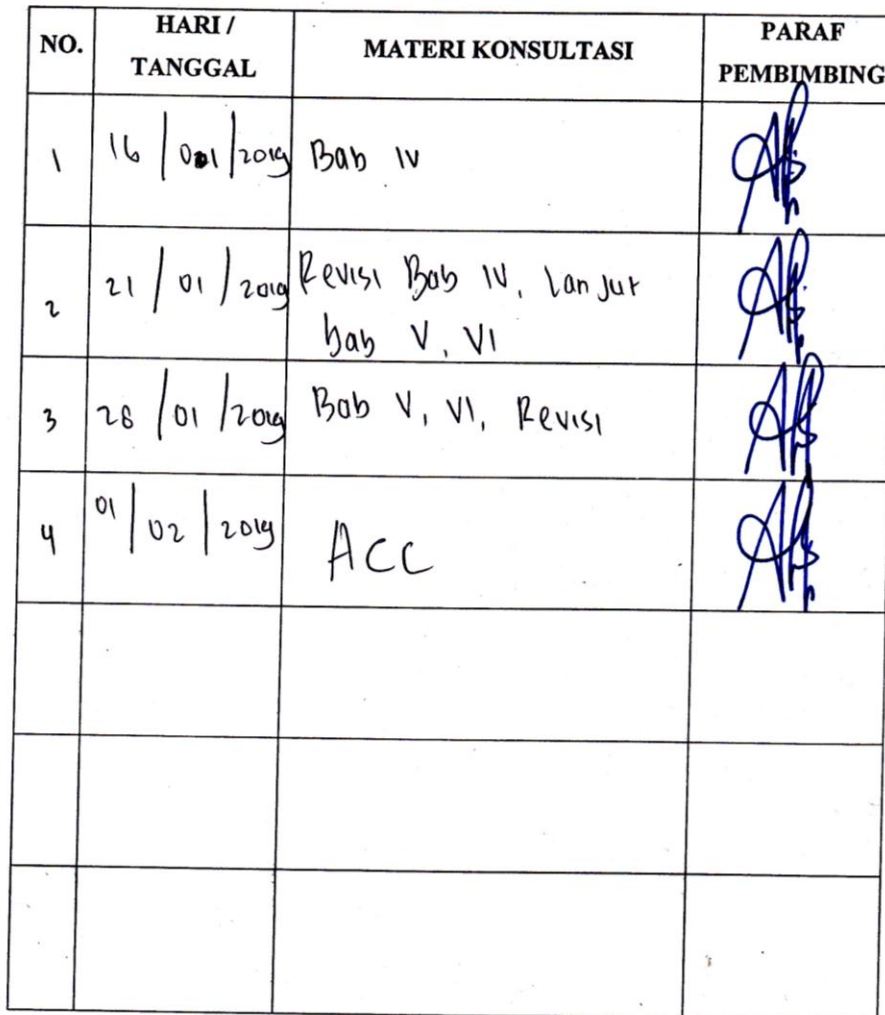 NO.
HARI /
TANGGAL
MATERI KONSULTASI
PARAF
PEMBIMBING
1 16 / 01 / 2019 Bab IV
2 21 / 01 / 2019 Revisi Bab IV, lanjut
bab V, VI
3 28 / 01 / 2019 Bab V, VI, Revisi
4 01 / 02 / 2019 ACC